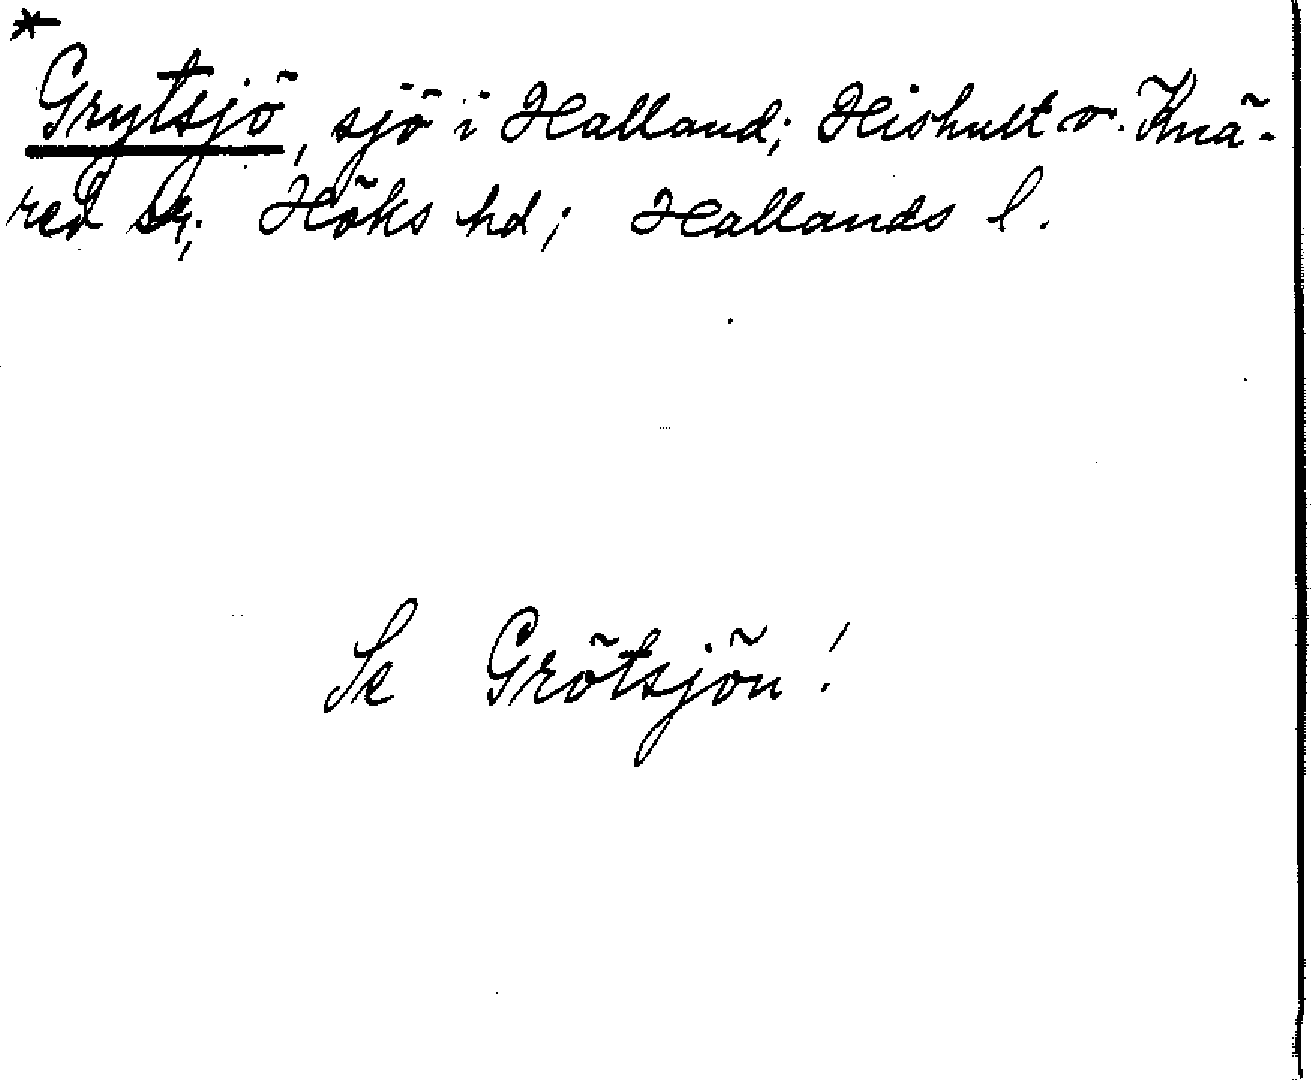 *
Grytsjö, sjö i Halland; Hishult o. Knä-
red sn; Höks hd; Hallands l.
Se Grötsjön!